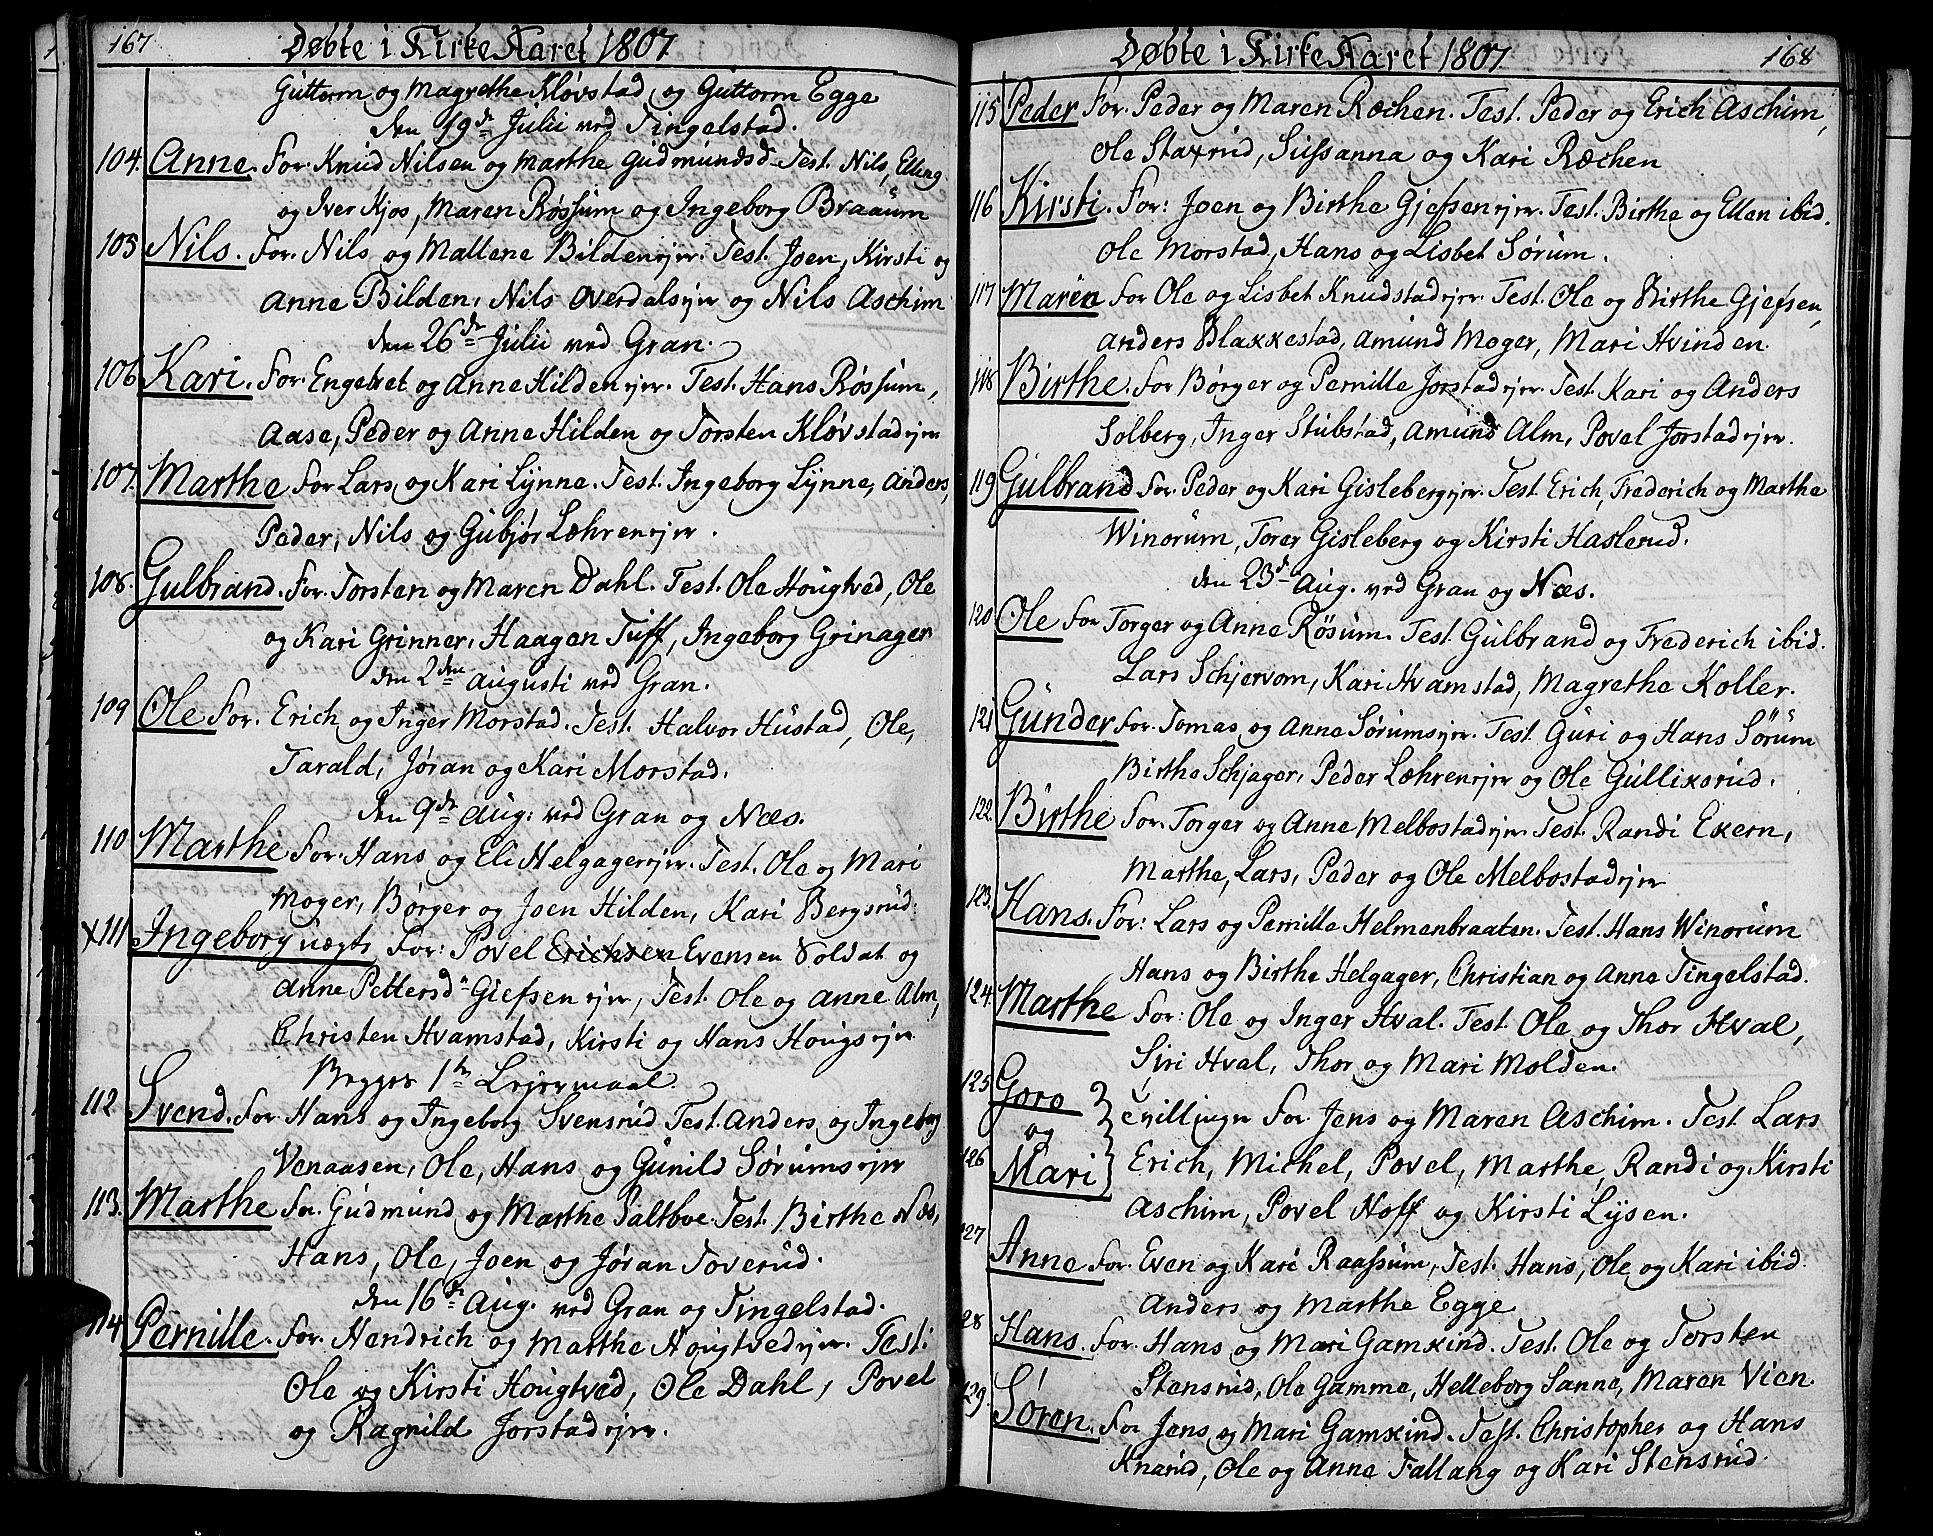 167 Døbte i Kirke Aaret 1807
Guttorm og Magrethe Kløvstad, og Guttorm Egge
den 19de Julii ved Tingelstad.
104. Anne. For. Knud Nilsen og Marthe Gudmundsd. Test. Nils, Elling
og Iver Kjos, Maren Røssum og Ingeborg Braaum
105 Nils. For. Nils og Mallene Bildenejer. Test. Joen, Kirsti og
Anne Bilden, Nils Overdalsejer og Nils Aschim
den 26de Julii ved Gran.
106 Kari. For. Engebret og Anne Hildenejer. Test. Hans Røssum,
Aase, Peder og Anne Hilden og Torsten Kløvstadejer
107. Marthe For Lars og Kari Lynne. Test. Ingeborg Lynne, Anders,
Peder, Nils og Gubjør Læhrenejer.
108. Gulbrand. For. Torsten og Maren Dahl. Test. Ole Hougtved, Ole
og Kari Grinner, Haagen Tuff, Ingeborg Grinager
den 2den Augusti ved Gran.
109 Ole For. Erich og Inger Morstad. Test. Halvor Hustad, Ole,
Tarald, Jøran og Kari Morstad.
den 9de Aug: ved Gran og Næs.
110 Marthe For. Hans og Eli Helgagerejer. Test. Ole og Mari
Moger, Børger og Joen Hilden, Kari Bergsrud.
x111 Ingeborg uægte For: Povel Erichsen Evensen Soldat og
Anne Pettersd. Giefsenejer, Test. Ole og Anne Alm,
Christen Hvamstad, Kirsti og Hans Hougsejer
Begges 1te Lejermaal.
112 Svend. For Hans og Ingeborg Svensrud Test. Anders og Ingeborg
Venaasen, Ole, Hans og Gunild Sørumsejer
113. Marthe For. Gudmund og Marthe Saltboe. Test. Birthe Næs,
Hans, Ole, Joen og Jøran Toverud.
den 16de Aug. ved Gran og Tingelstad.
114 Pernille. For. Hendrich og Marthe Hougtvedejer. Test.
Ole og Kirsti Hougtved, Ole Dahl, Povel
og Ragnild Jorstadejer.
Døbte i Kirke Aaret 1807 168
115 Peder For. Peder og Maren Ræchen. Test. Peder og Erich Aschim,
Ole Staxrud, Sussanna og Kari Ræchen
116 Kirsti. For: Joen og Birthe Gjefsenejer. Test. Birthe og Ellen ibid.
Ole Morstad, Hans og Lisbet Sørum.
117 Maren For Ole og Lisbet Knudstadejer. Test. Ole og Birthe Gjefsen,
Anders Blaxkestad, Amund Moger, Mari Hvinden.
118 Birthe. For Børger og Pernille Jorstadejer. Test. Kari og Anders
Solberg, Inger Stubstad, Amund Alm, Povel Jorstadejer.
119 Gulbrand For. Peder og Kari Gislebergejer. Test. Erich, Frederich og Marthe
Winorum, Torer Gisleberg og Kirsti Haslerud.
den 23de Aug. ved Gran og Næs.
120 Ole For Torger og Anne Røsum. Test. Gulbrand og Frederich ibid.
Lars Schjervom, Kari Hvamstad, Magrethe Koller.
121 Gunder For. Tomas og Anne Sørumsejer. Test. Guri og Hans Sørum
Birthe Schjager, Peder Læhrenejer og Ole Gullixsrud.
122 Birthe For. Torger og Anne Melbostadejer Test. Randi Exern,
Marthe, Lars, Peder og Ole Melbostadejer
123. Hans. For: Lars og Pernille Helmenbraaten. Test. Hans Winorum
Hans og Birthe Helgager, Christian og Anne Tingelstad.
124. Marthe For: Ole og Inger Hval. Test. Ole og Thor Hval,
Siri Hval, Thor og Mari Molden.
125 Goro
og Tvillinger For. Jens og Maren Aschim. Test. Lars
126 Mari Erich, Michel, Povel, Marthe, Randi og Kirsti
Aschim, Povel Hoff og Kirsti Lysen.
127 Anne For. Even og Kari Raassum, Test. Hans, Ole og Kari ibid.
Anders og Marthe Egge
128 Hans. For. Hans og Mari Gamxind. Test. Ole og Torsten
Stensrud, Ole Gamme, Helleborg Sanne, Maren Vien.
129. Søren. For Jens og Mari Gamxind. Test. Christopher og Hans
Knarud, Ole og Anne Fallang og Kari Stensrud.